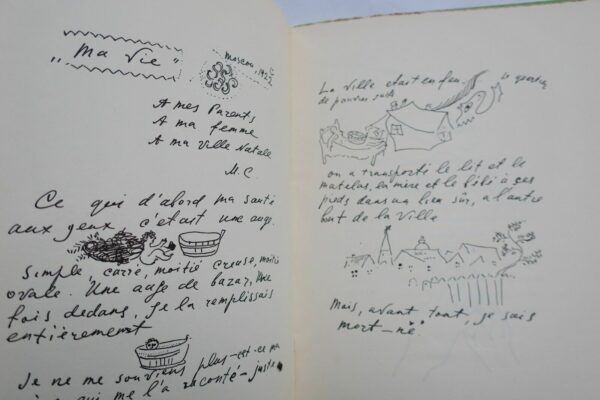 "Ma Vie"
Moscou, 1922
A mes Parents
A ma femme
A ma Ville Natale
M. C.
Ce qui d'abord m'a sauté
aux yeux, c'était une aug.
simple, carré, moitié creuse, moitié
ovale. Une auge de bazar. Une
fois dedans, je la remplissais
entièrement
Je ne me souviens plus – est-ce ma
qui me l'a raconté – juste
La Ville etait en feu. le quartier
de pauvres juifs
on a transporté le lit et le
matelas, la mère et le bébé à ses
pieds dans un lieu sûr, a l'autre
but de la Ville
Mais, avant tout, je suis
mort-né.